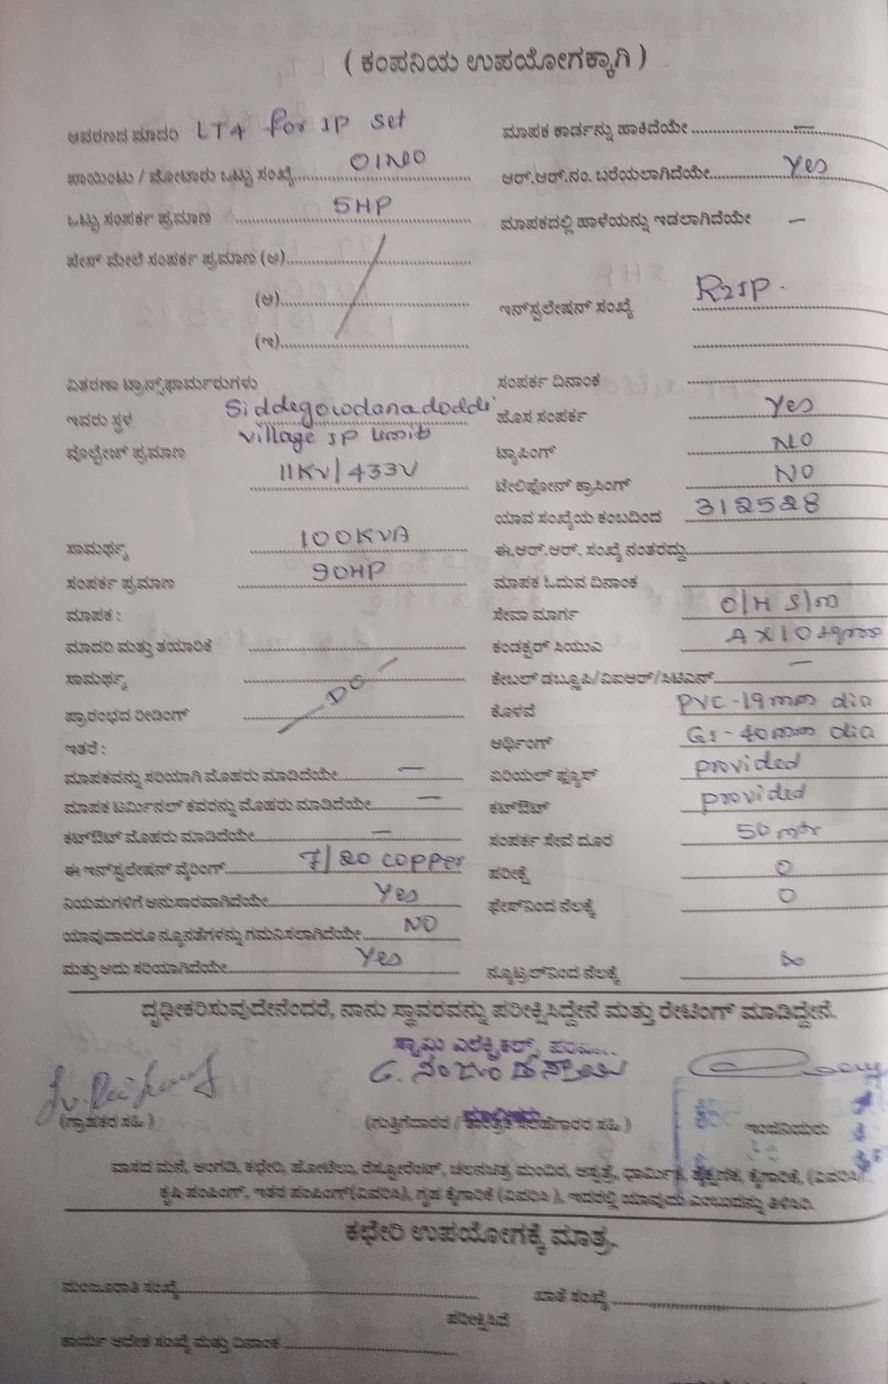 ( ಕಂಪನಿಯ ಉಪಯೋಗಕ್ಕಾಗಿ )
ಆವರಣದ ಮಾದರಿ LT4 for IP set
ಪಾಯಿಂಟು / ಮೋಟಾರು ಒಟ್ಟು ಸಂಖ್ಯೆ 01No
ಒಟ್ಟು ಸಂಪರ್ಕ ಪ್ರಮಾಣ 5HP
ಫೇಸ್ ಮೇಲೆ ಸಂಪರ್ಕ ಪ್ರಮಾಣ (ಅ)
(ಆ)
(ಇ)
ವಿತರಣಾ ಟ್ರಾನ್ಸ್‌ಫಾರ್ಮರುಗಳು
ಇವರು ಸ್ಥಳ Siddegowdanadoddi
village IP limit
ವೋಲ್ಟೇಜ್ ಪ್ರಮಾಣ
11KV/433V
ಸಾಮರ್ಥ್ಯ 100KVA
ಸಂಪರ್ಕ ಪ್ರಮಾಣ 90HP
ಮಾಪಕ :
ಮಾದರಿ ಮತ್ತು ತಯಾರಿಕೆ
ಸಾಮರ್ಥ್ಯ
ಪ್ರಾರಂಭದ ರೀಡಿಂಗ್ -DO-
ಇತರೆ :
ಮಾಪಕವನ್ನು ಸರಿಯಾಗಿ ಮೊಹರು ಮಾಡಿದೆಯೇ —
ಮಾಪಕ ಟರ್ಮಿನಲ್ ಕವರನ್ನು ಮೊಹರು ಮಾಡಿದೆಯೇ —
ಕಟ್‌ಔಟ್ ಮೊಹರು ಮಾಡಿದೆಯೇ —
ಈ ಇನ್‌ಸ್ಟಲೇಷನ್ ವೈರಿಂಗ್ 7/20 copper
ನಿಯಮಗಳಿಗೆ ಅನುಸಾರವಾಗಿದೆಯೇ Yes
ಯಾವುದಾದರೂ ನ್ಯೂನತೆಗಳನ್ನು ಗಮನಿಸಲಾಗಿದೆಯೇ NO
ಮತ್ತು ಅದು ಸರಿಯಾಗಿದೆಯೇ Yes
ಮಾಪಕ ಕಾರ್ಡನ್ನು ಹಾಕಿದೆಯೇ —
ಆರ್.ಆರ್.ನಂ. ಬರೆಯಲಾಗಿದೆಯೇ Yes
ಮಾಪಕದಲ್ಲಿ ಹಾಳೆಯನ್ನು ಇಡಲಾಗಿದೆಯೇ —
ಇನ್‌ಸ್ಟಲೇಷನ್ ಸಂಖ್ಯೆ
ಸಂಪರ್ಕ ದಿನಾಂಕ
ಹೊಸ ಸಂಪರ್ಕ Yes
ಟ್ಯಾಪಿಂಗ್ NO
ಟೆಲಿಫೋನ್ ಕ್ರಾಸಿಂಗ್ NO
ಯಾವ ಸಂಖ್ಯೆಯ ಕಂಬದಿಂದ 312528
ಈ.ಆರ್.ಆರ್. ಸಂಖ್ಯೆ ನಂತರದ್ದು
ಮಾಪಕ ಓದುವ ದಿನಾಂಕ
ಸೇವಾ ಮಾರ್ಗ O/H S/m
ಕಂಡಕ್ಟರ್ ಸಿಯುಎ
ಕೇಬಲ್ ಡಬ್ಲೂಪಿ/ವಿಐಆರ್/ಸಿಟಿಎಸ್ —
ಕೊಳವೆ PVC-19mm dia
ಅರ್ಥಿಂಗ್ GI-40mm dia
ಏರಿಯಲ್ ಫ್ಯೂಸ್ provided
ಕಟ್‌ಔಟ್ provided
ಸಂಪರ್ಕ ಸೇವೆ ದೂರ 50 mtr
ಪರೀಕ್ಷೆ 0
ಫೇಸ್‌ನಿಂದ ನೆಲಕ್ಕೆ 0
ನ್ಯೂಟ್ರಲ್‌ನಿಂದ ನೆಲಕ್ಕೆ
ದೃಢೀಕರಿಸುವುದೇನೆಂದರೆ, ನಾನು ಸ್ಥಾವರವನ್ನು ಪರೀಕ್ಷಿಸಿದ್ದೇನೆ ಮತ್ತು ರೇಟಿಂಗ್ ಮಾಡಿದ್ದೇನೆ.
(ಗ್ರಾಹಕರ ಸಹಿ )
(ಗುತ್ತಿಗೆದಾರರ / ಸಹಿ )
ಇಂಜಿನಿಯರು
ವಾಸದ ಮನೆ, ಅಂಗಡಿ, ಕಛೇರಿ, ಹೋಟೆಲು, ರೆಸ್ಟೋರೆಂಟ್, ಚಲನಚಿತ್ರ ಮಂದಿರ, ಆಸ್ಪತ್ರೆ, ಧಾರ್ಮಿಕ, ಶೈಕ್ಷಣಿಕ, ಕೈಗಾರಿಕೆ, (ವಿವರಿಸಿ)
ಕೃಷಿ ಪಂಪಿಂಗ್, ಇತರ ಪಂಪಿಂಗ್(ವಿವರಿಸಿ), ಗೃಹ ಕೈಗಾರಿಕೆ (ವಿವರಿಸಿ ), ಇವರಲ್ಲಿ ಯಾವುದು ಎಂಬುದನ್ನು ತಿಳಿಸಿರಿ.
ಕಛೇರಿ ಉಪಯೋಗಕ್ಕೆ ಮಾತ್ರ.
ಮಂಜೂರಾತಿ ಸಂಖ್ಯೆ
ಖಾತೆ ಸಂಖ್ಯೆ
ಪರೀಕ್ಷಿಸಿದೆ
ಕಾರ್ಯ ಆದೇಶ ಸಂಖ್ಯೆ ಮತ್ತು ದಿನಾಂಕ